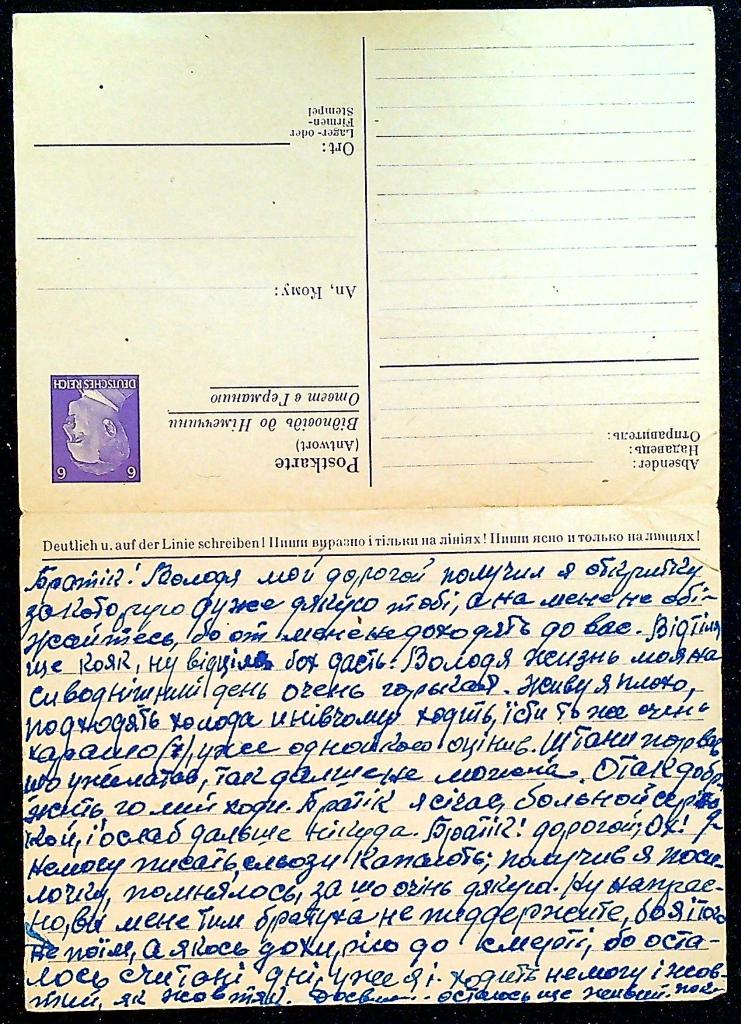 Ort:
Lager- oder
Firmen-
Stempel
An, Кому:
Postkarte
(Antwort)
Відповідь до Німеччини
Ответ в Германию
6 6
DEUTSCHES REICH
Absender:
Надавець:
Отправитель:
Deutlich u. auf der Linie schreiben! Пиши виразно і тільки на лініях! Пиши ясно и только на линиях!
Братік! Володя мой дорогой получил я откритку
за которую дуже дякую тобі, а на мене не обі-
жайтесь, бо от мене не доходять до вас. Відтіля
ще кояк, ну відціля бох дасть! Володя жизнь моя на
сиводнішний день очень горькая. Живу я плохо,
подходять холода и нівчому ходить, їсти то же очень
харашо (7), уже одного оцінив. Штани порвав
що уже латав, так дальше не можна. Отак добре
жить го мий ходи. Братік я січас, больной серцо
кой, і ослаб дальше нікуда. Братік! дорогой, Ох!
немогу писать, сльози капають; получив я поси-
лочку, помнялось, за що очінь дякую. Ну напрас-
но, ви мене тим братуха не піддержите, бо я того
не поїм, а якось дохирію до смерті, бо оста-
лось считані дні, уже я і ходить немогу і жов-
тий, як жовтяк. осталось ще живий.